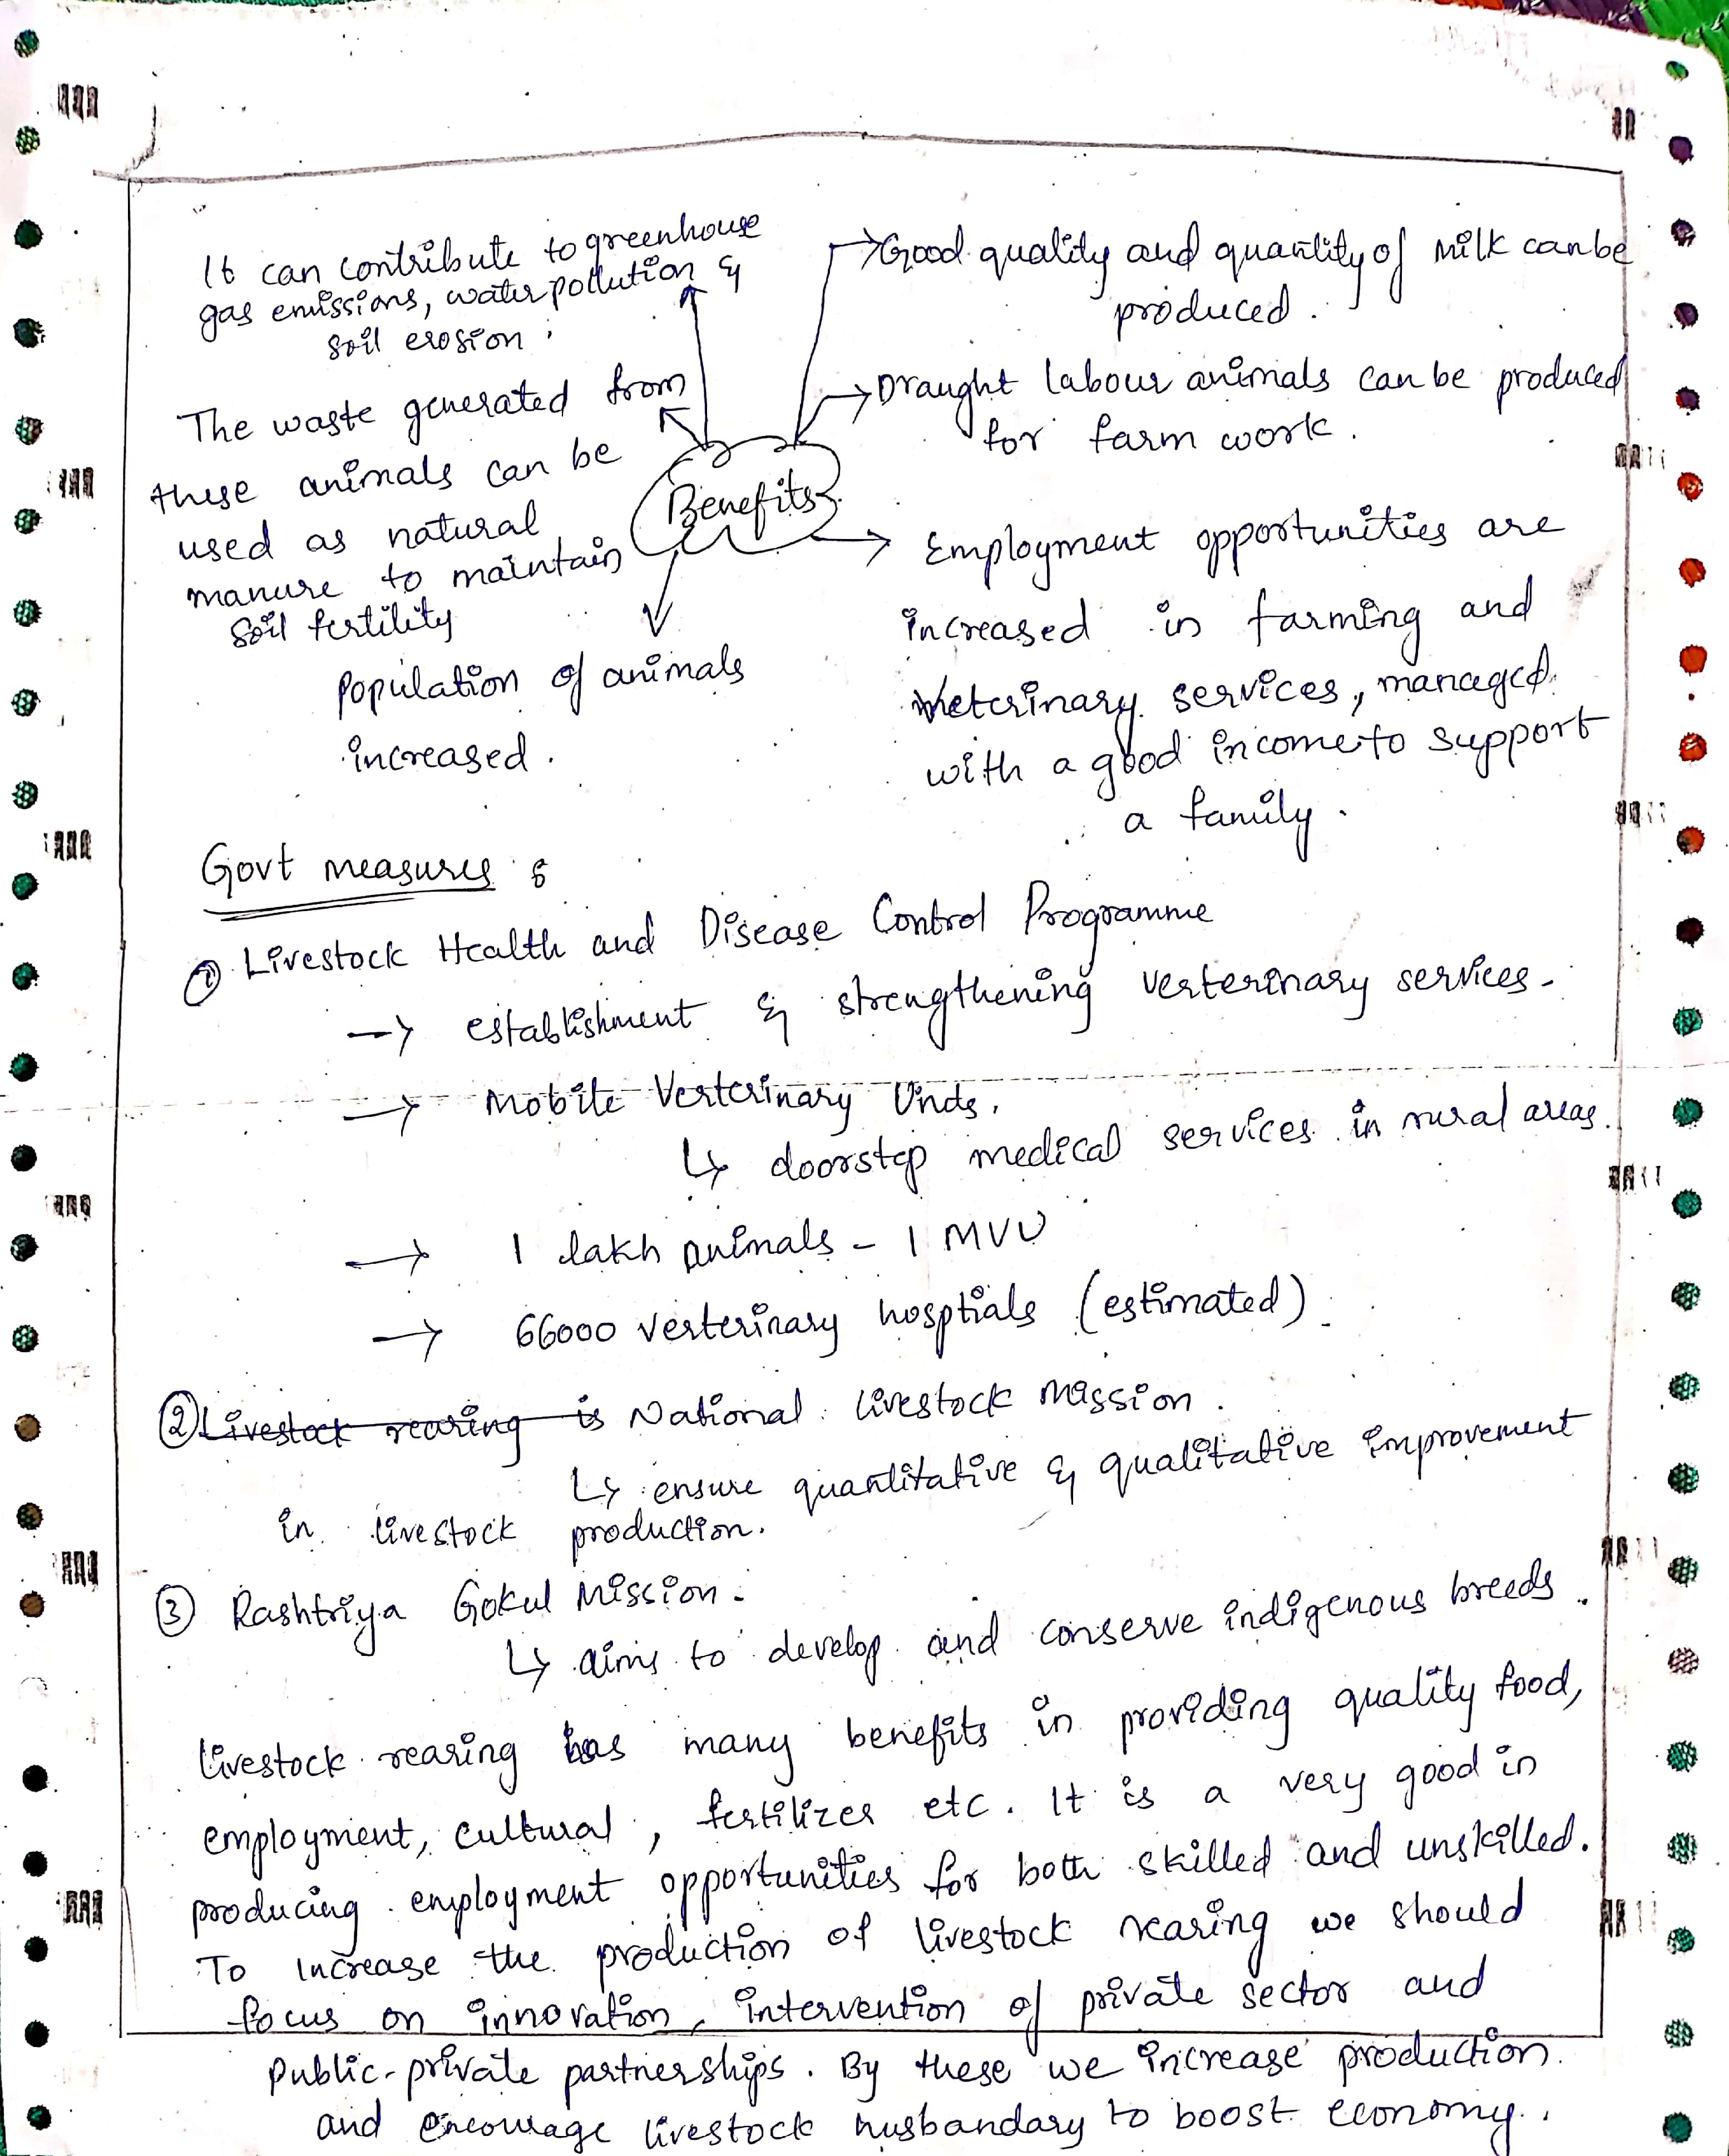 It can contribute to greenhouse
gas emissions, water pollution &
soil erosion.
The waste generated from
these animals can be
used as natural
manure to maintain
soil fertility
Benefits
population of animals
increased.
Good quality and quantity of milk can be
produced.
Draught labour animals can be produced
for farm work.
Employment opportunities are
increased in farming and
veterinary services, managed
with a good income to support
a family.
Govt measures :
① Livestock Health and Disease Control Programme
→ establishment & strengthening verterinary services.
→ Mobile Verterinary Units.
↳ doorstep medical services in rural areas.
→ 1 lakh animals - 1 MVU
→ 66000 verterinary hosptials (estimated).
② Livestock rearing is National livestock mission.
↳ ensure quantitative & qualitative improvement
in livestock production.
③ Rashtriya Gokul Mission.
↳ aims to develop and conserve indigenous breeds.
livestock rearing has many benefits in providing quality food,
employment, cultural, fertilizer etc. It is a very good in
producing employment opportunities for both skilled and unskilled.
To increase the production of livestock rearing we should
focus on innovation, intervention of private sector and
public-private partnerships. By these we increase production
and encourage livestock husbandary to boost economy.